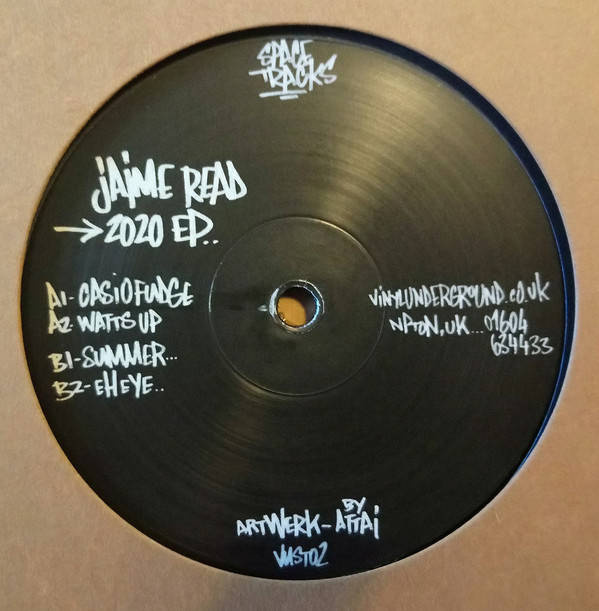 SPACE
TRACKS
JAIME READ
→ 2020 EP..
A1-CASIO FUDGE
A2 WATTS UP
B1-SUMMER...
B2-EH EYE..
VINYLUNDERGROUND.CO.UK
NPTON, UK... 01604
634433
ARTWERK- BY ATTAI
VUST02